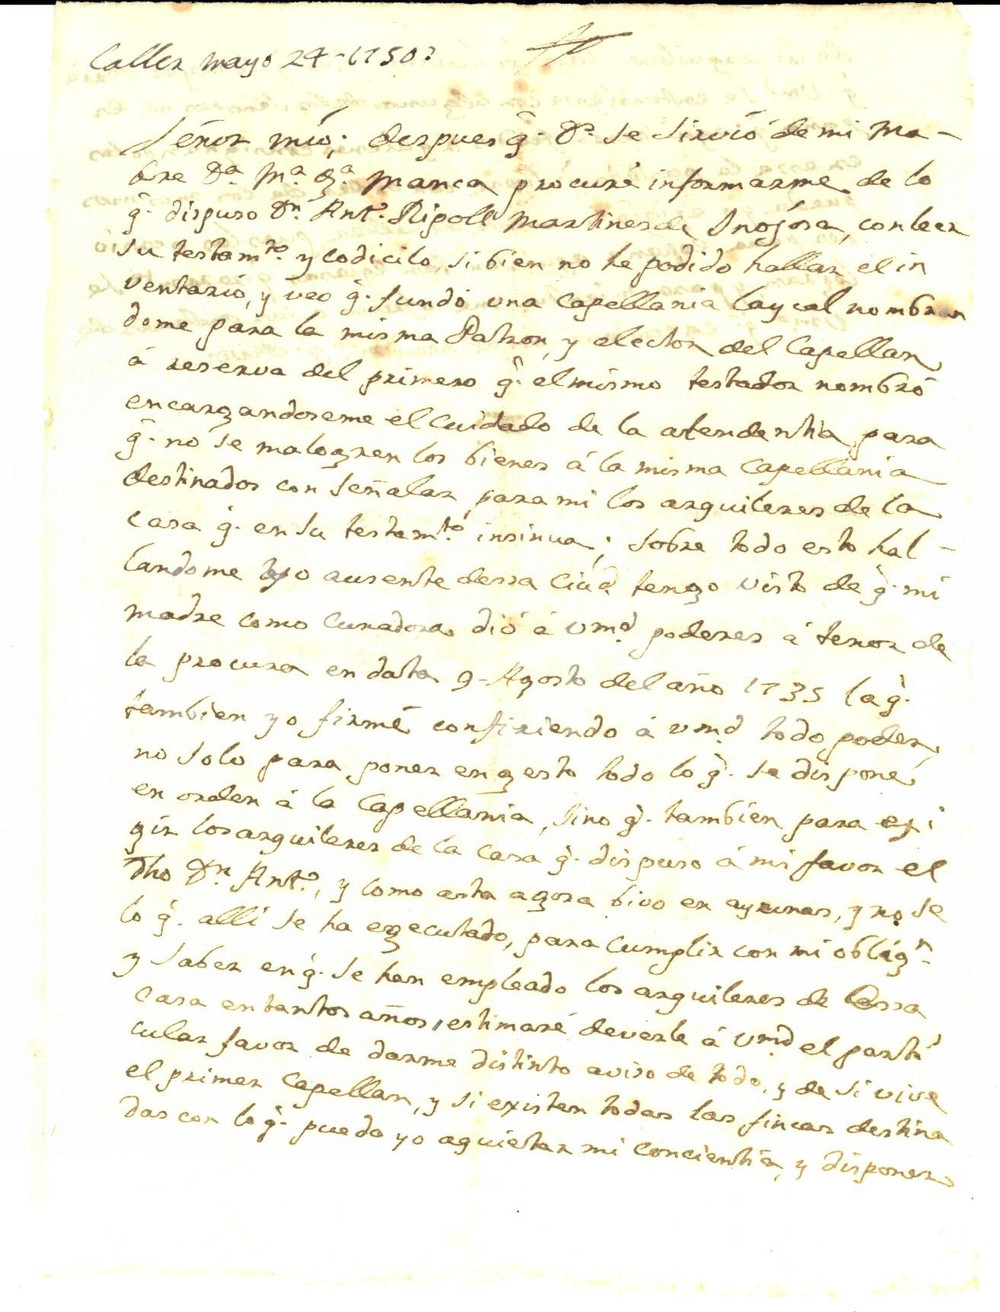 Caller mayo 24-1750
Señor mio; despues q̃. Ds. se sirvió de mi Ma-
dre Da. Ma. Manca procuré informarme de lo
q̃. dispuso Dn. Anto. Ripoll Martines de Inojosa, con leer
su testamto. y codicilo, si bien no he podido hallar el in
ventario, y veo q̃. fundó una Capellania laycal nombran
dome para la misma Patron, y elector del Capellan,
á reserva del primero q̃. el mismo testador nombró
encargandoseme el cuidado de la atendentia, para
q̃. no se malogren los bienes á la misma Capellania
destinados con señalar para mi los arquileres de la
casa q̃. en su testamto. insinua; sobre todo esto hal-
landome yo ausente dessa Ciud. tengo visto de q̃. mi
madre como Curadora dió á Vmd. poderes á tenor de
la procura en data 9-Agosto del año 1735 la q̃.
tambien yo firmé confiriendo á Vmd. todo poder,
no solo para poner en gesto todo lo q̃. se disponé
en orden á la Capellania, sino q̃. tambien para exi
gir los arquileres de la casa q̃. dispuso á mi favor el
Dho Dn. Anto., y como asta agora bivo en ayunas, y no se
lo q̃. alli se ha egecutado, para cumplir con mi obligⁿ.
y saber en q̃. se han empleado los arquileres de essa
casa en tantos años, estimaré deverle á Vmd. el parti
cular favor de darme distinto aviso de todo, y de si vive
el primer Capellan, y si existen todas las fincas destina
das con lo q̃. pueda yo aquietar mi concientia, y disponer